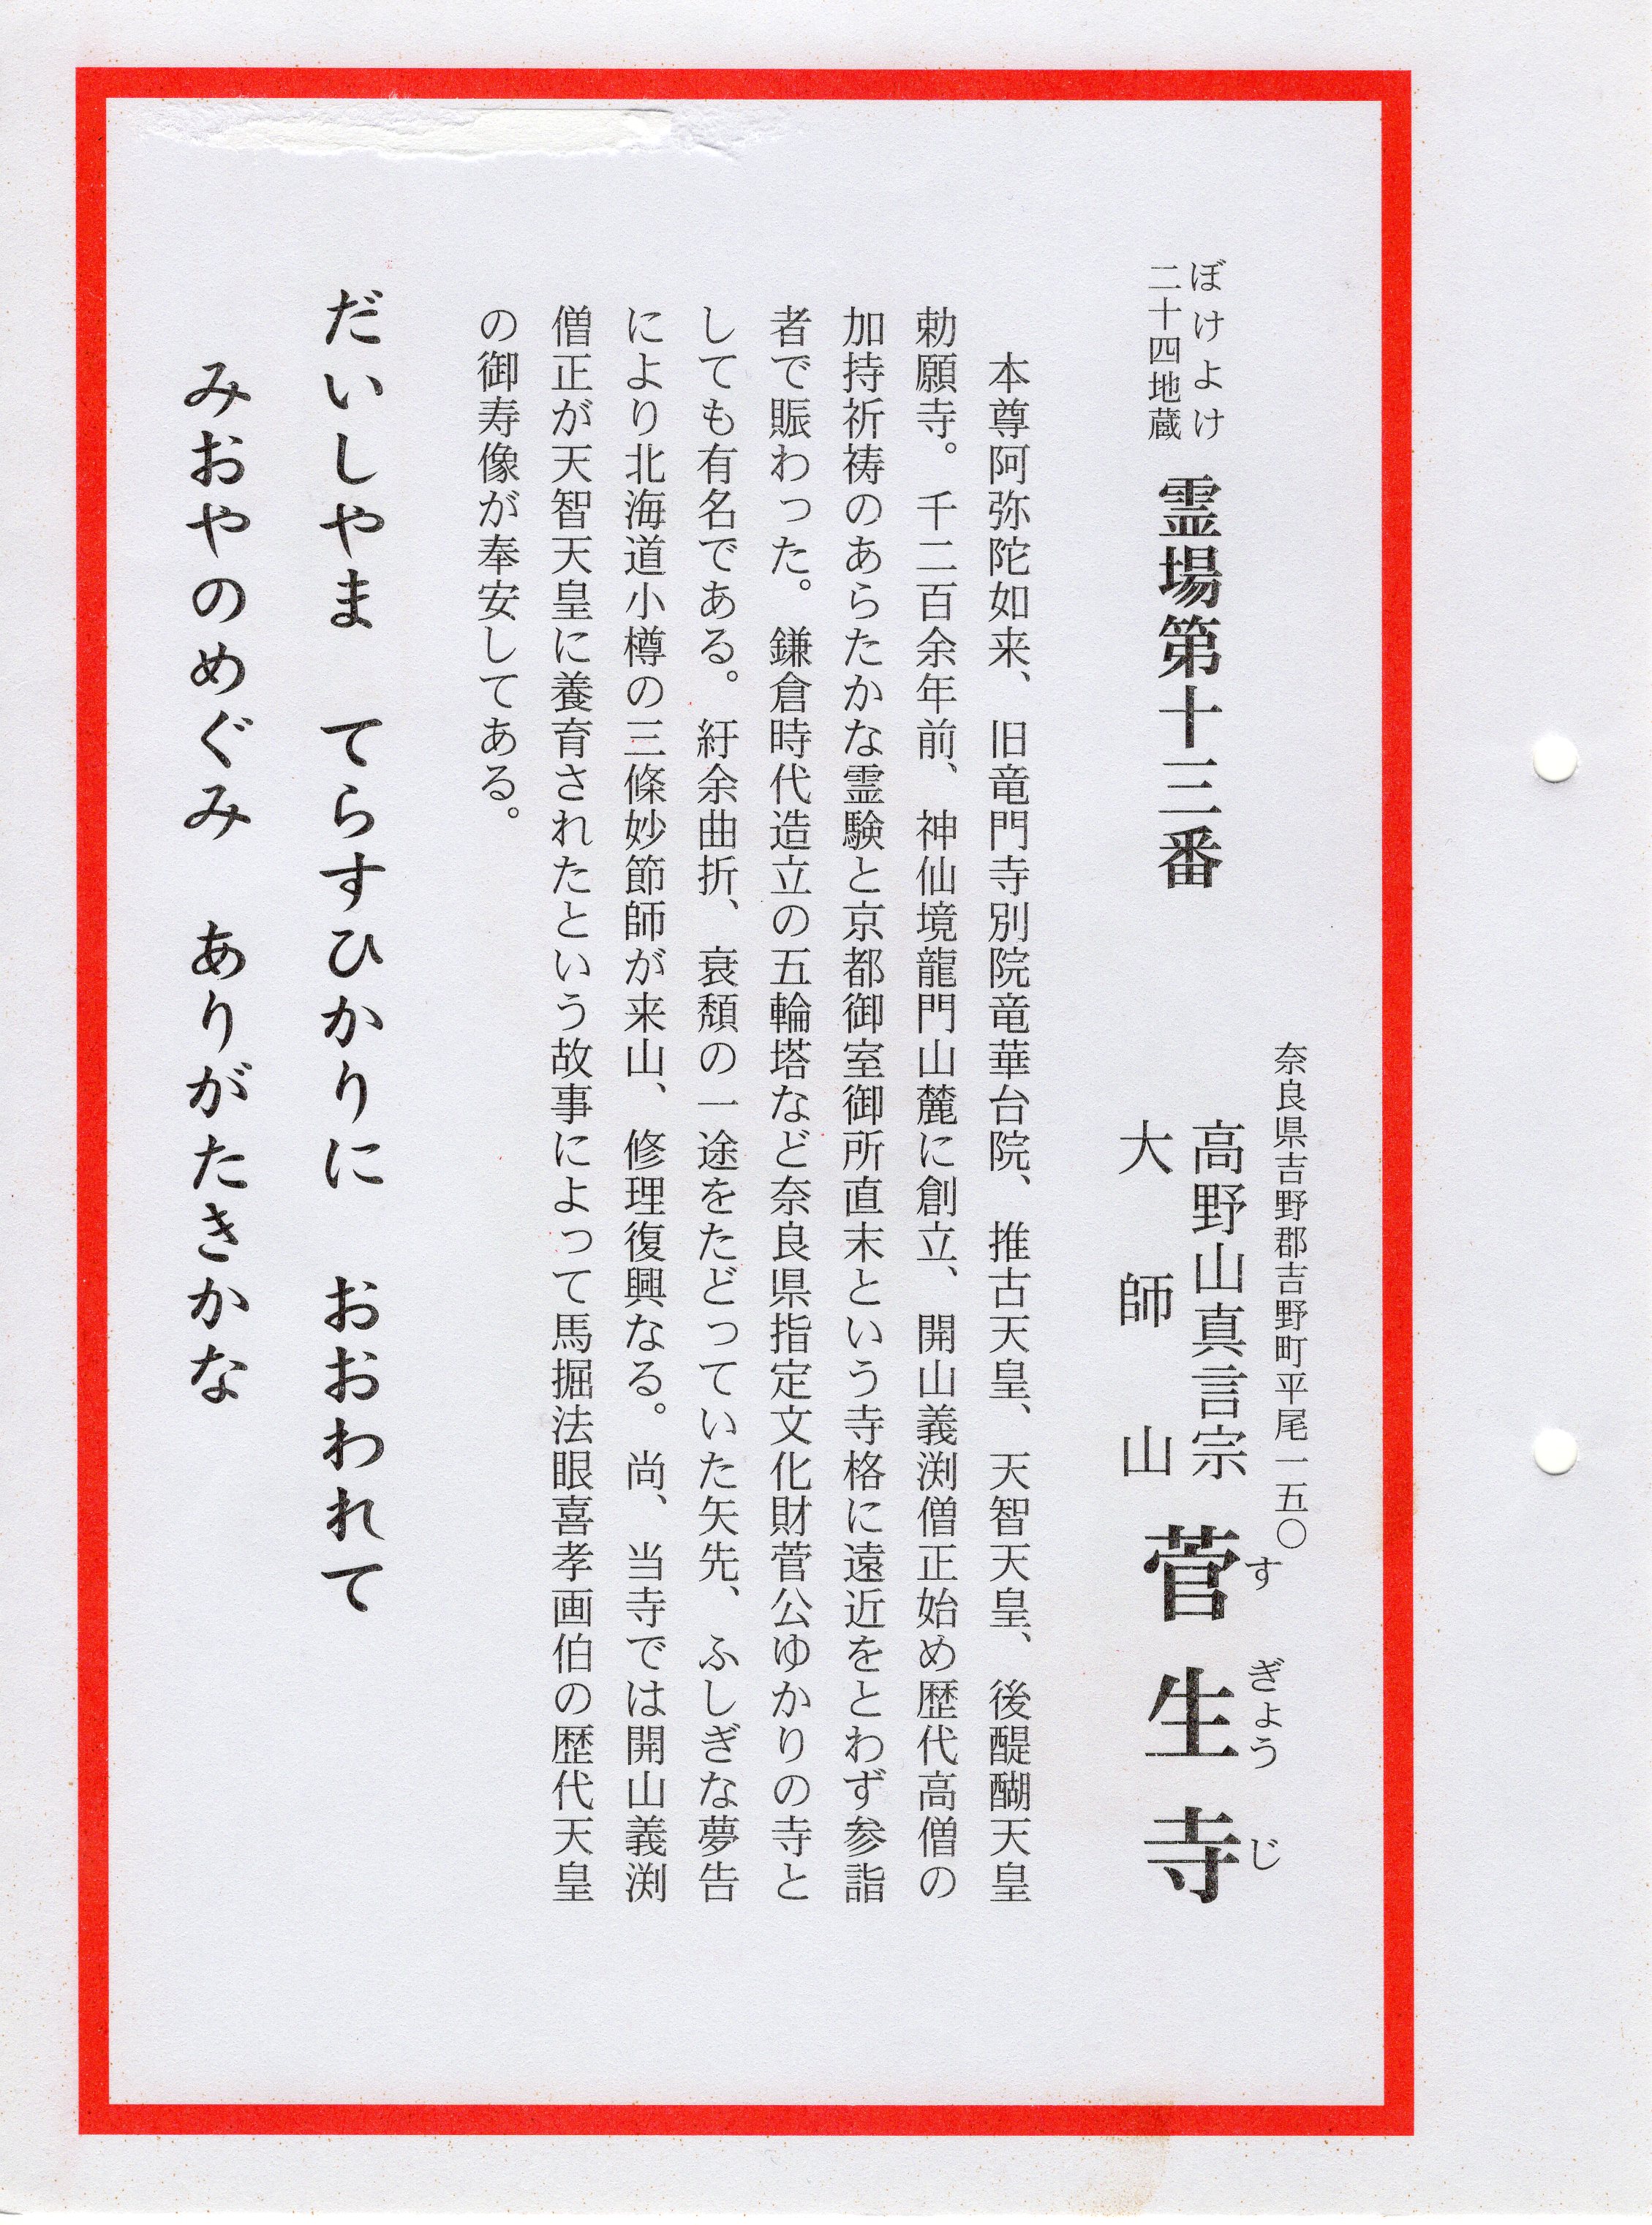 ぼけよけ
二十四地蔵
霊場第十三番
奈良県吉野郡吉野町平尾一五〇
高野山真言宗
大師山
菅生寺
すぎょうじ
本尊阿弥陀如来、旧竜門寺別院竜華台院、推古天皇、天智天皇、後醍醐天皇
勅願寺。千二百余年前、神仙境龍門山麓に創立、開山義渕僧正始め歴代高僧の
加持祈祷のあらたかな霊験と京都御室御所直末という寺格に遠近をとわず参詣
者で賑わった。鎌倉時代造立の五輪塔など奈良県指定文化財菅公ゆかりの寺と
しても有名である。紆余曲折、衰頽の一途をたどっていた矢先、ふしぎな夢告
により北海道小樽の三條妙節師が来山、修理復興なる。尚、当寺では開山義渕
僧正が天智天皇に養育されたという故事によって馬掘法眼喜孝画伯の歴代天皇
の御寿像が奉安してある。
だいしやま てらすひかりに おおわれて
みおやのめぐみ ありがたきかな